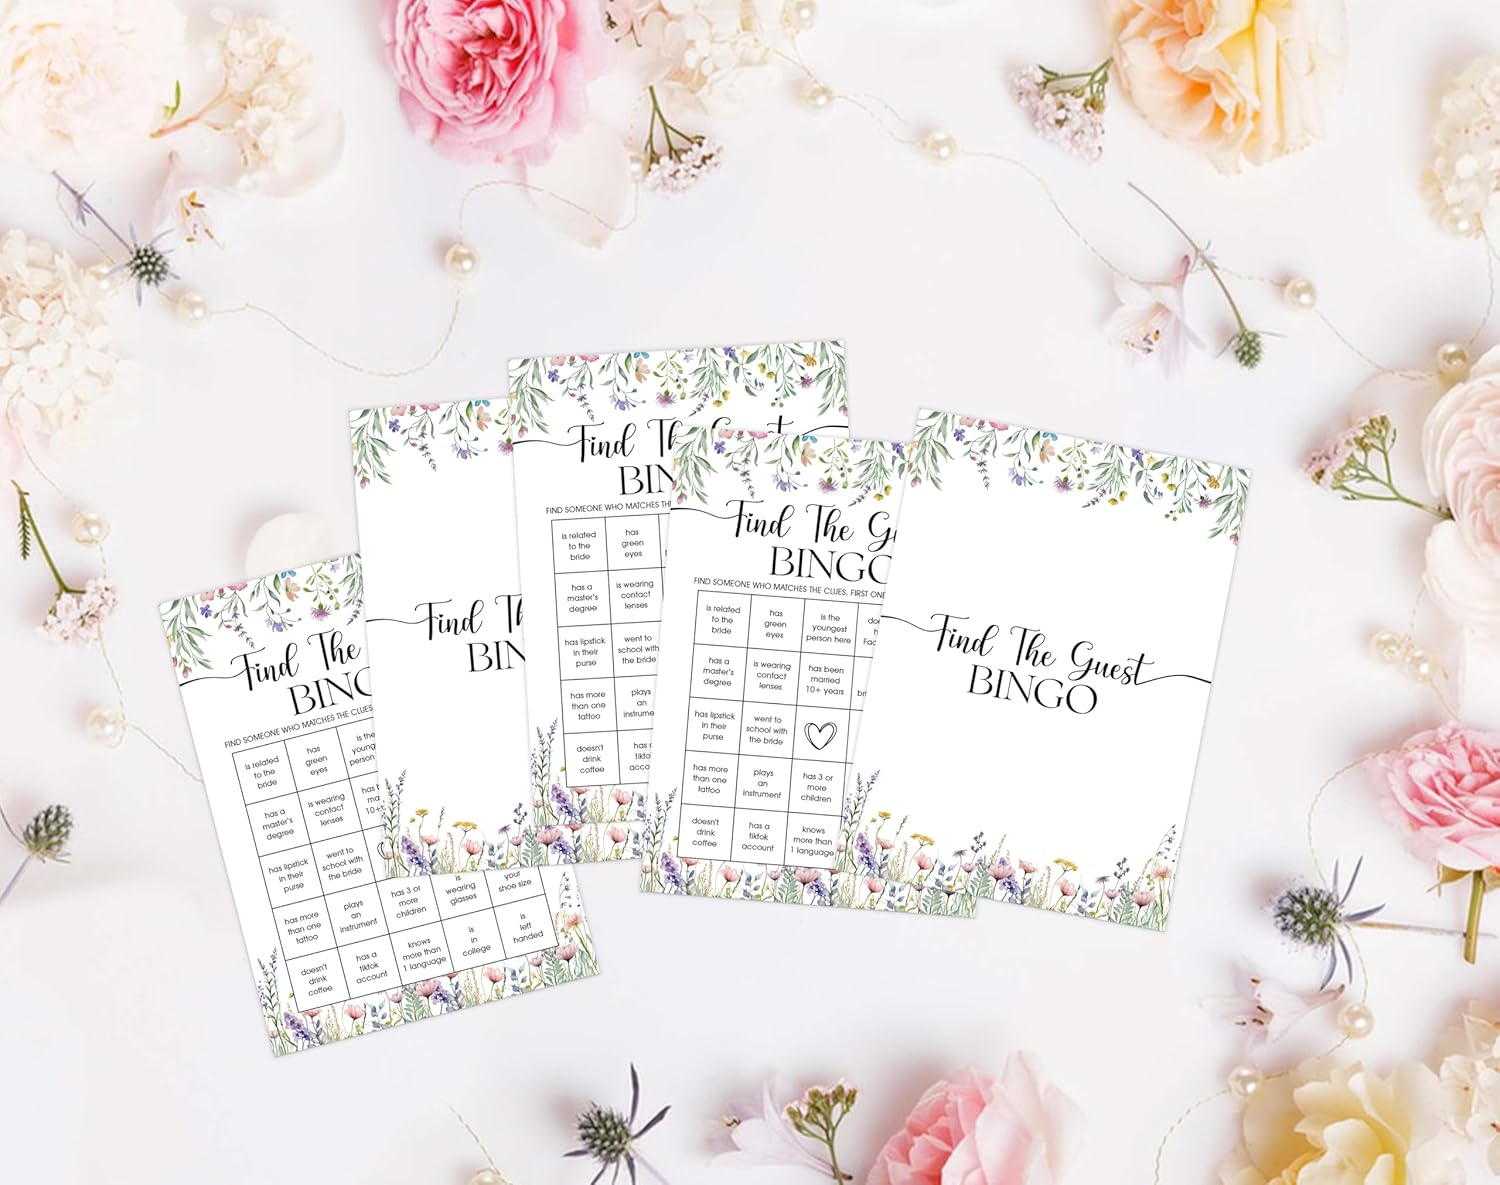 Find The
BINGO
FIND SOMEONE WHO MATCHES THE CLUES.
is related
to the
bride
has
green
eyes
is the
person
has a
master's
degree
is wearing
contact
lenses
10+
has lipstick
in their
purse
went to
school with
the bride
has more
than one
tattoo
plays
an
instrument
has 3 or
more
children
is
wearing
glasses
your
shoe size
doesn't
drink
coffee
has a
tiktok
account
knows
more than
1 language
is
in
college
is
left
handed
Find
Find The
FIND SOMEONE WHO MATCHES THE
is related
to the
bride
has
green
eyes
has a
master's
degree
is wearing
contact
lenses
has lipstick
in their
purse
went to
school with
the bride
has more
than one
tattoo
plays
an
doesn't
drink
coffee
Find The
BINGO
FIND SOMEONE WHO MATCHES THE CLUES. FIRST ONE
is related
to the
bride
has
green
eyes
is the
youngest
person here
has a
master's
degree
is wearing
contact
lenses
has been
married
10+ years
has lipstick
in their
purse
went to
school with
the bride
has more
than one
tattoo
plays
an
instrument
has 3 or
more
children
doesn't
drink
coffee
has a
tiktok
account
knows
more than
1 language
Find The Guest
BINGO